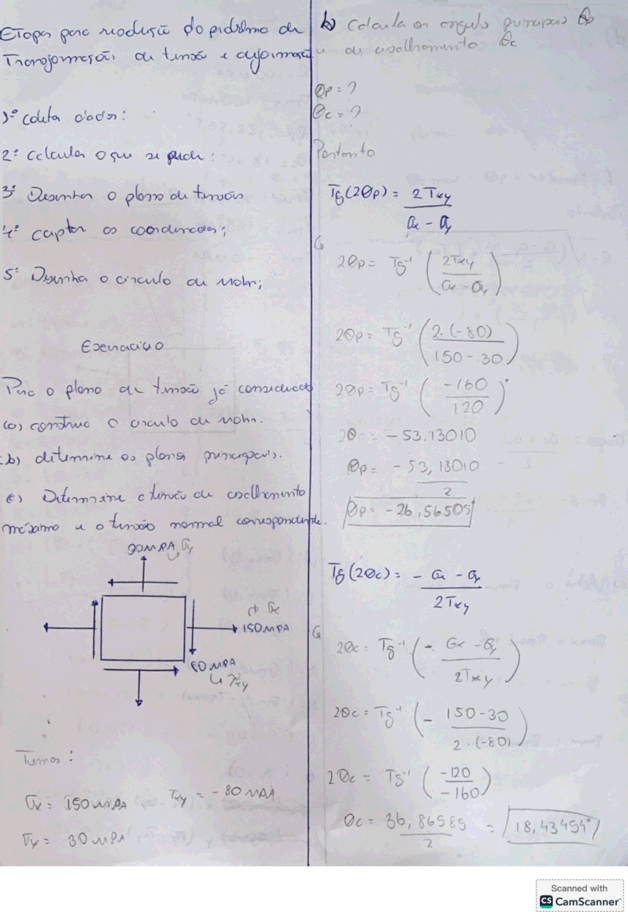 Etapas para resolução do problema de
Transformação de tensão e deformação
1º coleta dados:
2º calcular o que se pede:
3º Desenhar o plano de tensão
4º captar as coordenadas;
5º Desenha o circulo de mohr;
Exercicio
Para o plano de tensão já considerado
(a) construa o circulo de mohr.
(b) determine os planos principais.
(c) Determine a tensão de cisalhamento
máximo e a tensão normal correspondente.
30 MPA σy
σx
150 MPA
80 MPA
τxy
Temos:
σx = 150 MPA τxy = -80 MPA
σy = 30 MPA
b) Calcula os angulo principais θp
e de cisalhamento θc
θp = ?
θc = ?
Portanto
Tg(2θp) = 2τxy / σx - σy
2θp = Tg⁻¹ (2τxy / σx - σy)
2θp = Tg⁻¹ (2.(-80) / 150 - 30)
2θp = Tg⁻¹ (-160 / 120)
2θ = -53,13010
θp = -53,13010 / 2
θp = -26,56505°
Tg(2θc) = - σx - σy / 2τxy
2θc = Tg⁻¹ (- σx - σy / 2τxy)
2θc = Tg⁻¹ (- 150 - 30 / 2.(-80))
2θc = Tg⁻¹ (-120 / -160)
θc = 36,86585 / 2 = 18,43494°
Scanned with
CS CamScanner